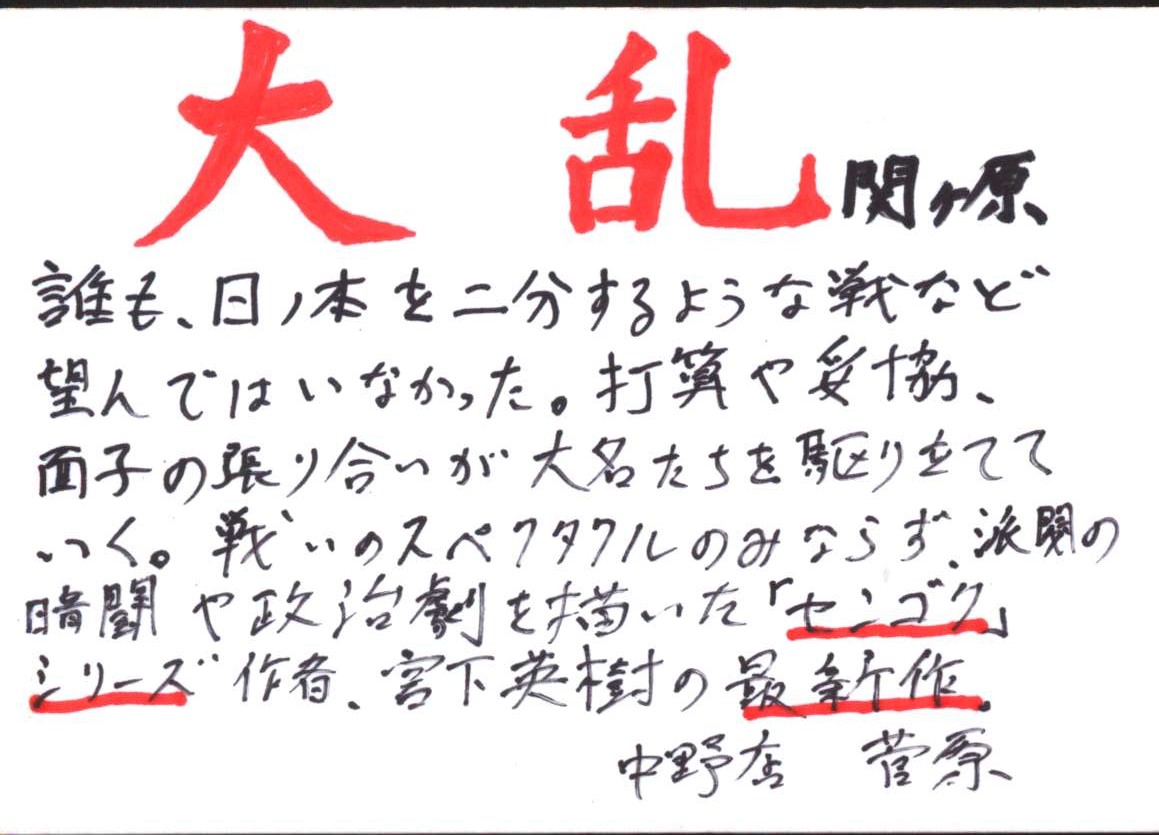 大乱 関ヶ原
誰も、日ノ本を二分するような戦など
望んではいなかった。打算や妥協、
面子の張り合いが大名たちを駆りたてて
いく。戦いのスペクタクルのみならず、派閥の
暗闘や政治劇を描いた「センゴク」
シリーズ作者、宮下英樹の最新作。
中野店 菅原